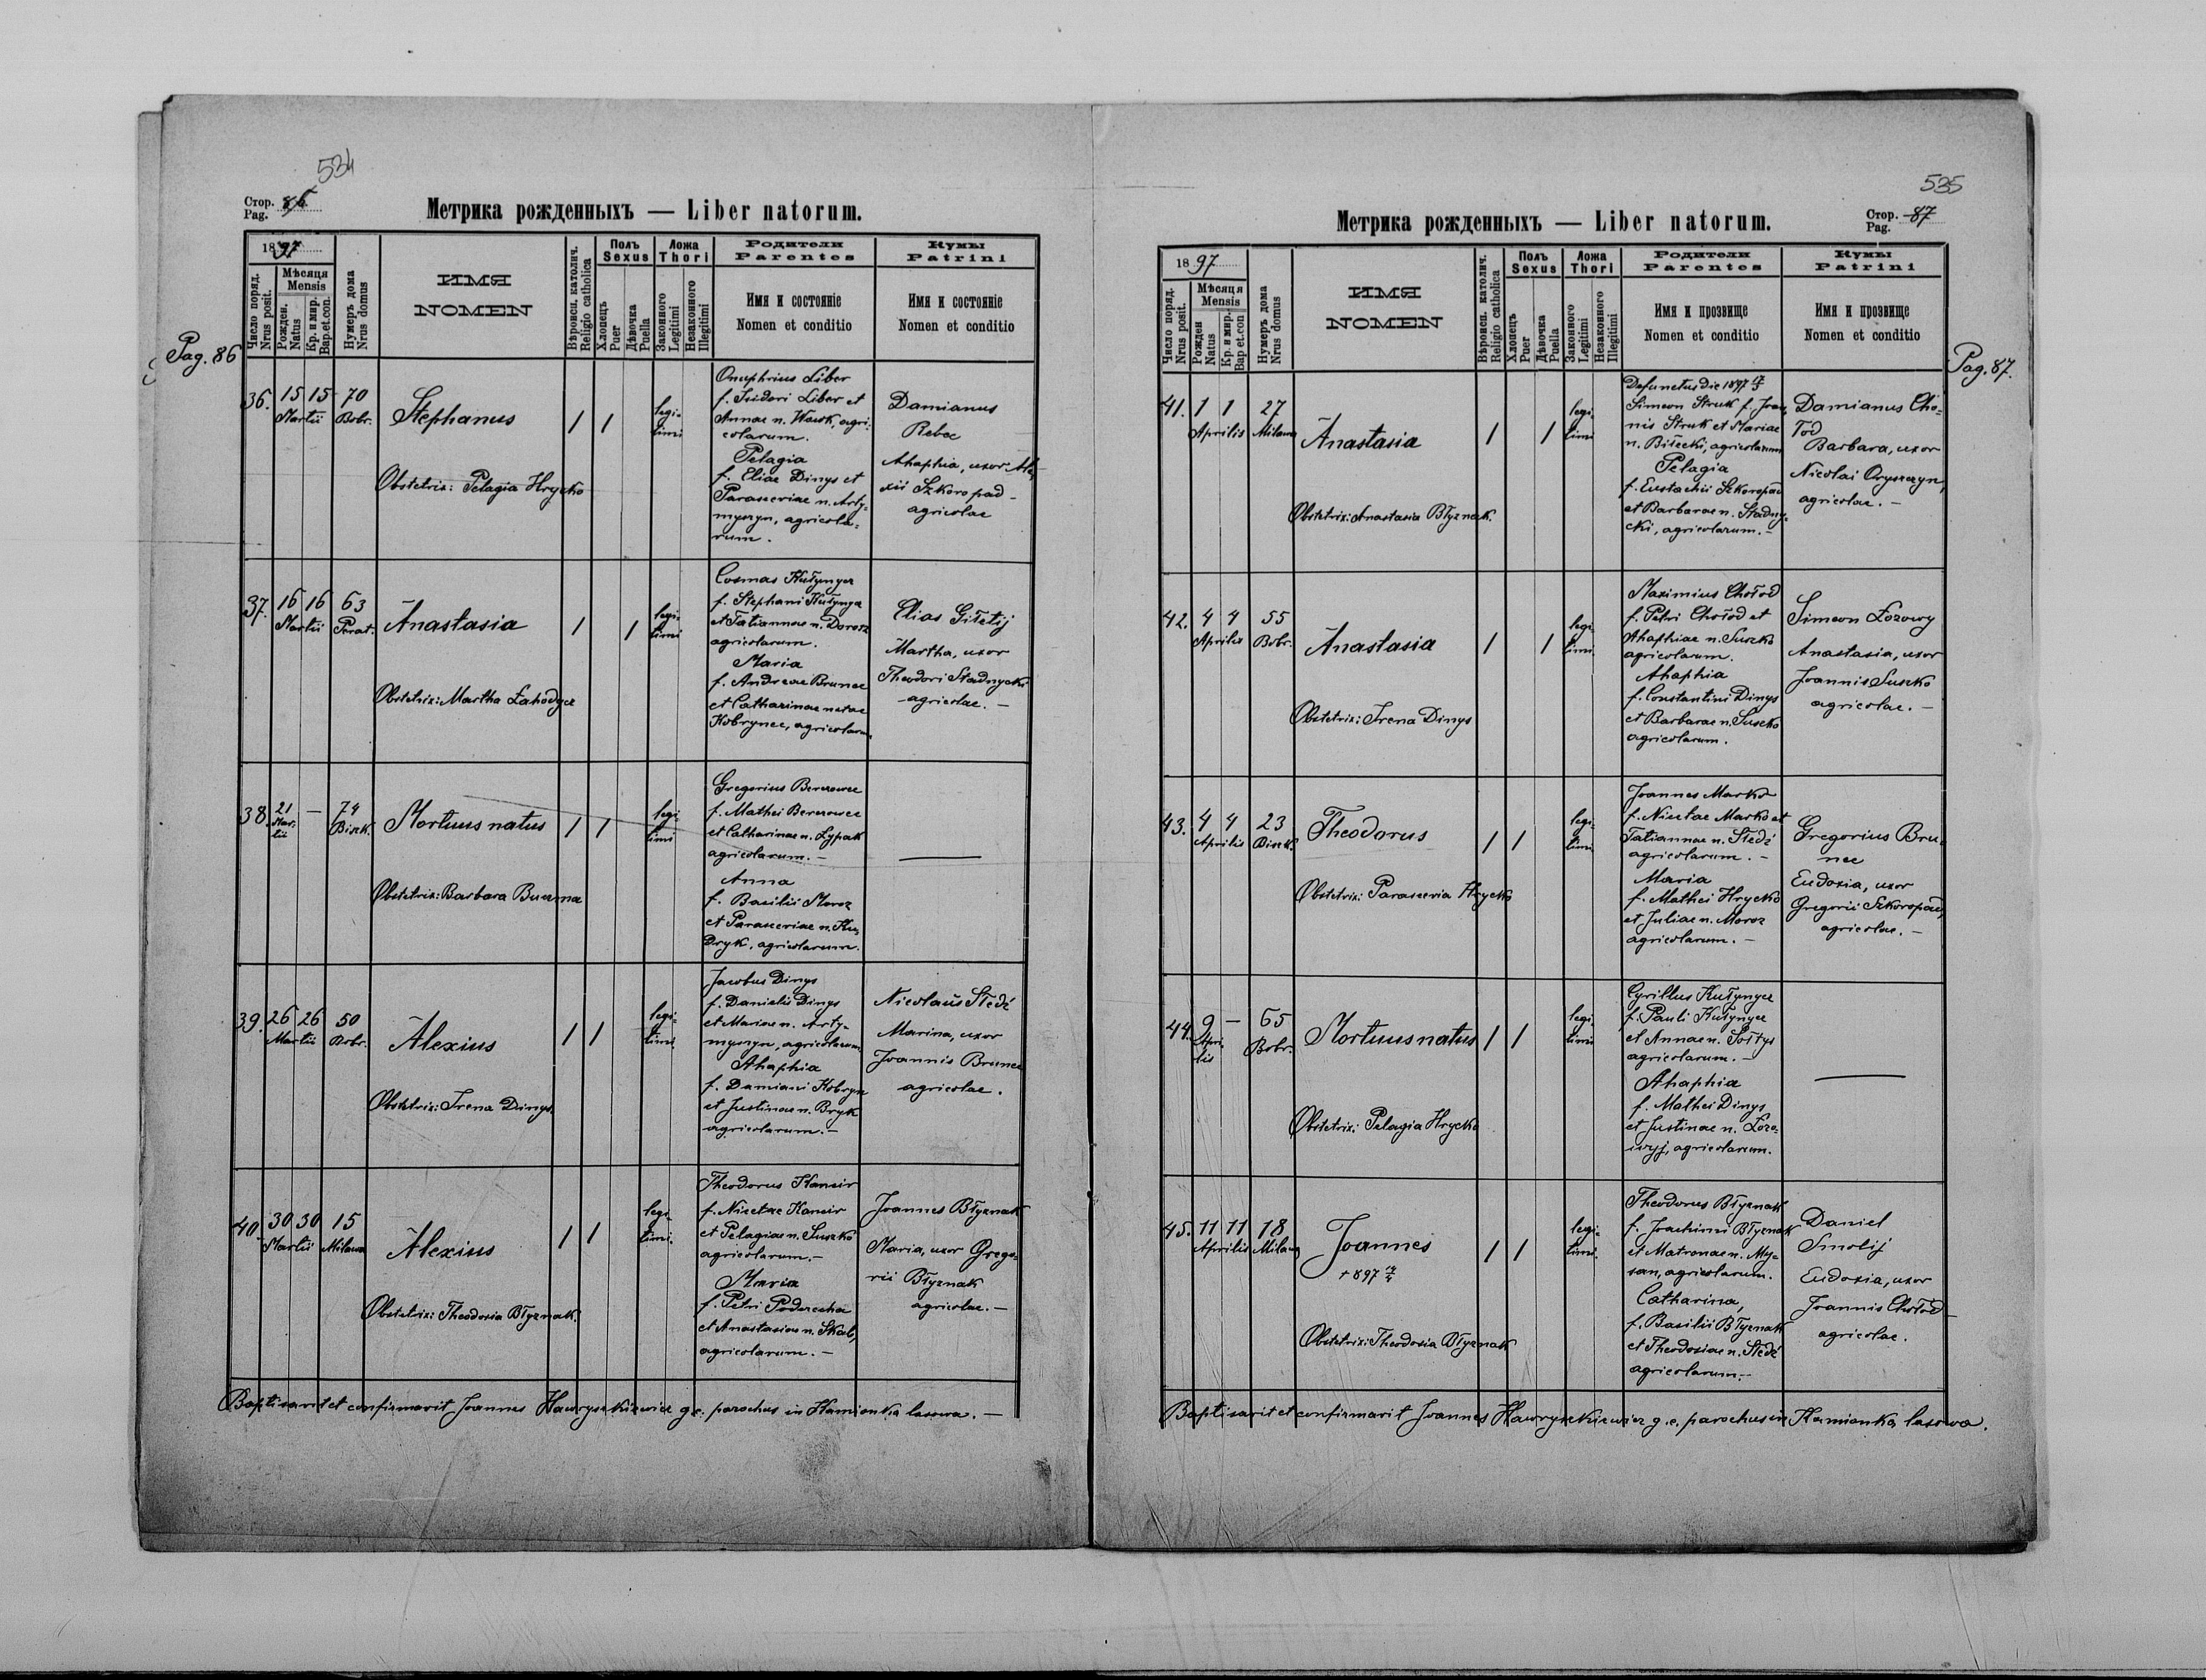 534
Стор. 86
Pag.
Метрика рожденныхъ — Liber natorum.
Pag. 86
1897
Число поряд.
Nrus posit.
Мѣсяця
Mensis
Рожден.
Natus
Кр. и мир.
Bap. et. con.
Нумеръ дома
Nrus domus
ИМЯ
NOMEN
Вѣроисп. католич.
Religio catholica
Полъ
Sexus
Хлопецъ
Puer
Дѣвочка
Puella
Ложа
Thori
Законного
Legitimi
Незаконного
Illegitimi
Родители
Parentes
Имя и состояніе
Nomen et conditio
Кумы
Patrini
Имя и состояніе
Nomen et conditio
36. 15 15 70
Martii Bobr.
Stephanus
Obstetrix: Pelagia Hrycko
1 1
legi-
timi
Onuphrius Liber
f. Isidori Liber et
Annae n. Wawk, agri-
colarum.
Pelagia
f. Eliae Dinys et
Parasceviae n. Arty-
myszyn, agricola-
rum.
Damianus
Rebec
Ahaphia, uxor Ale-
xii Szkoropad -
agricolae
37. 16 16 63
Martii Porat.
Anastasia
Obstetrix: Martha Zahodycz
1 1
legi-
timi
Cosmas Kułynycz
f. Stephani Kułynycz
et Tatiannae n. Dorosz
agricolarum.
Maria
f. Andreae Brunec
et Catharinae natae
Kobrynec, agricolarum
Elias Gitetij
Martha, uxor
Theodori Stadnycki
agricolae. —
38. 21 — 74
Mar-
tii
Biszk.
Mortuus natus
Obstetrix: Barbara Buczma
1 1
legi-
timi
Gregorius Berezowec
f. Mathei Berezowec
et Catharinae n. Lypak
agricolarum. —
Anna
f. Basilii Moroz
et Parasceviae n. Ku-
dryk, agricolarum.
—
39. 26 26 50
Martii Bobr.
Alexius
Obstetrix: Irena Dinys.
1 1
legi-
timi.
Jacobus Dinys
f. Danielis Dinys
et Mariae n. Arty-
myszyn, agricolarum
Ahaphia
f. Damiani Kobryn
et Justinae n. Bryk
agricolarum. —
Nicolaus Stedź
Marina, uxor
Joannis Brunec
agricolae.
40. 30 30 15
Martii Milawa
Alexius
Obstetrix: Theodosia Błyznak.
1 1
legi-
timi.
Theodorus Kancir
f. Nicetae Kancir
et Pelagiae n. Suszko
agricolarum. —
Maria
f. Petri Poderecha
et Anastasiae n. Skab,
agricolarum. —
Joannes Błyznak
Maria, uxor Grego-
rii Błyznak
agricolae. —
Baptisavit et confirmavit Joannes Hawryszkiewicz g.c. parochus in Kamionka lasowa. —
535
Метрика рожденныхъ — Liber natorum.
Стор. 87
Pag.
Pag. 87.
1897
Число поряд.
Nrus posit.
Мѣсяця
Mensis
Рожден
Natus
Кр. и мир.
Bap et. con
Нумеръ дома
Nrus domus
ИМЯ
NOMEN
Вѣроисп. католич.
Religio catholica
Полъ
Sexus
Хлопецъ
Puer
Дѣвочка
Puella
Ложа
Thori
Законного
Legitimi
Незаконного
Illegitimi
Родители
Parentes
Имя и прозвище
Nomen et conditio
Кумы
Patrini
Имя и прозвище
Nomen et conditio
41. 1 1 27
Aprilis Milawa
Anastasia
Obstetrix: Anastasia Błyznak.
1 1
legi-
timi
Defunctus die 1897
Simeon Struk f. Joan-
nis Struk et Mariae
n. Biłecki, agricolarum
Pelagia
f. Eustachii Szkoropad
et Barbarae n. Stadny-
cki, agricolarum. —
Damianus Cho-
łod
Barbara, uxor
Nicolai Oryszczyn,
agricolae. —
42. 4 4 55
Aprilis Bobr.
Anastasia
Obstetrix: Irena Dinys
1 1
legi-
timi.
Maximius Chołod
f. Petri Chołod et
Ahaphiae n. Suszko
agricolarum.
Ahaphia
f. Constantini Dinys
et Barbarae n. Suszko
agricolarum.
Simeon Łozowy
Anastasia, uxor
Joannis Suszko
agricolae. —
43. 4 4 23
Aprilis Biszk.
Theodorus
Obstetrix: Parascevia Hrycko
1 1
legi-
timi.
Joannes Marko
f. Nicetae Marko et
Tatiannae n. Stedź
agricolarum. —
Maria
f. Mathei Hrycko
et Juliae n. Moroz
agricolarum. —
Gregorius Bru-
nec
Eudoxia, uxor
Gregorii Szkoropad,
agricolae. —
44. 9 — 65
Apri-
lis
Bobr.
Mortuus natus
Obstetrix: Pelagia Hrycko
1 1
legi-
timi
Cyrillus Kułynycz
f. Pauli Kułynycz
et Annae n. Sołtys
agricolarum. —
Ahaphia
f. Mathei Dinys
et Justinae n. Łozo-
wyj, agricolarum.
—
45. 11 11 18
Aprilis Milawa
Joannes
+ 897
Obstetrix: Theodosia Błyznak
1 1
legi-
timi.
Theodorus Błyznak
f. Joachimi Błyznak
et Matronae n. My-
san, agricolarum.
Catharina,
f. Basilii Błyznak
et Theodosiae n. Stedź
agricolarum. —
Daniel
Smolij
Eudoxia, uxor
Joannis Chołod —
agricolae.
Baptisavit et confirmavit Joannes Hawryszkiewicz g.c. parochus in Kamionka lasowa.